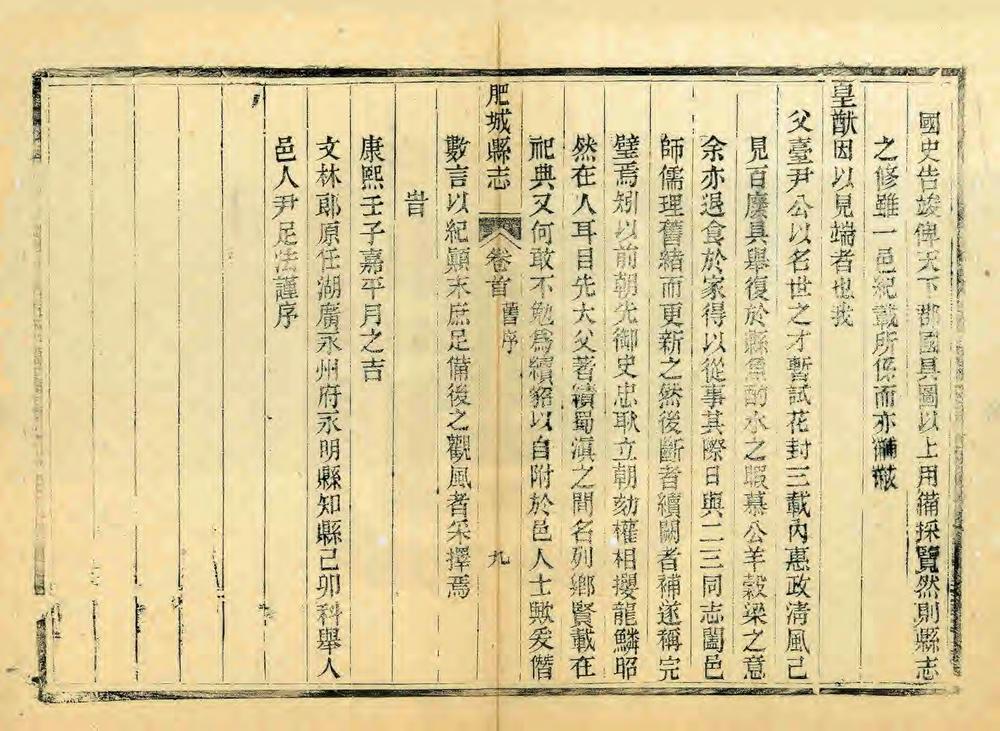 國史告竣俾天下郡國具圖以上用備採覽然則縣志
之修雖一邑紀載所係而亦黼黻
皇猷因以見端者也我
父臺尹公以名世之才暫試花封三載內惠政清風已
見百廢具舉復於縣魚酌水之暇慕公羊穀梁之意
余亦退食於家得以從事其際日與二三同志闔邑
師儒理舊緒而更新之然後斷者續闕者補遂稱完
璧焉矧以前朝先御史忠耿立朝劾權相攖龍鱗昭
然在人耳目先大父著績蜀滇之間名列鄉賢載在
祀典又何敢不勉爲續貂以自附於邑人士歟爰僭
肥城縣志 卷首 舊序 九
數言以紀顚末庶足備後之觀風者采擇焉
旹
康熙壬子嘉平月之吉
文林郎原任湖廣永州府永明縣知縣己卯科舉人
邑人尹足法謹序